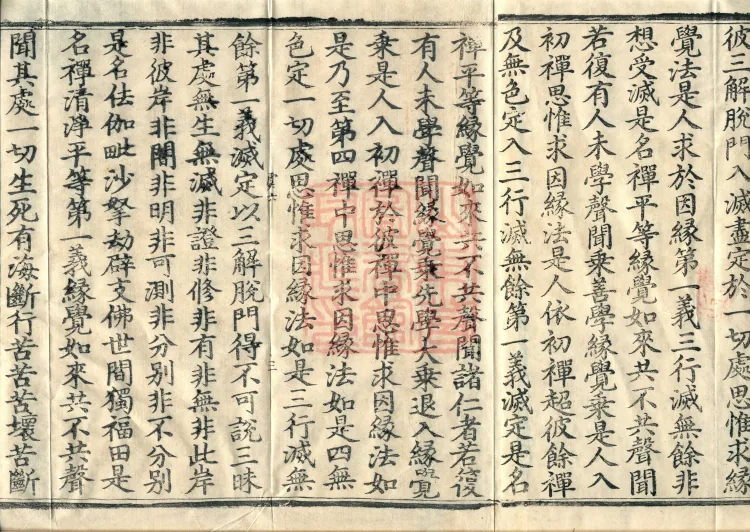 彼三解脫門入滅盡定於一切處思惟求緣
覺法是人求於因緣第一義三行滅無餘非
想受滅是名禪平等緣覺如來共不共聲聞
若復有人未學聲聞乘善學緣覺乘是人入
初禪思惟求因緣法是人依初禪超彼餘禪
及無色定入三行滅無餘第一義滅定是名
禪平等緣覺如來共不共聲聞諸仁者若復
有人未學聲聞緣覺乘先學大乘退入緣覺
乘是人入初禪於彼禪中思惟求因緣法如
是乃至第四禪中思惟求因緣法如是四無
色定一切處思惟求因緣法如是三行滅無
餘第一義滅定以三解脫門得不可說三昧
其處無生無滅非證非修非有非無非此岸
非彼岸非闇非明非可測非分別非不分別
是名佉伽毗沙拏劫辟支佛世間獨福田是
名禪清淨平等第一義緣覺如來共不共聲
聞其處一切生死有海斷行苦苦苦壞苦斷